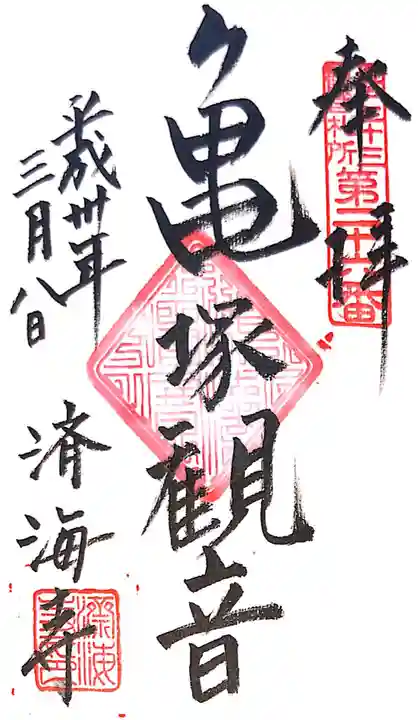 奉拝
三十三
札所
第二十六番
亀塚観音
平成卅年
三月八日
済海寺
済海